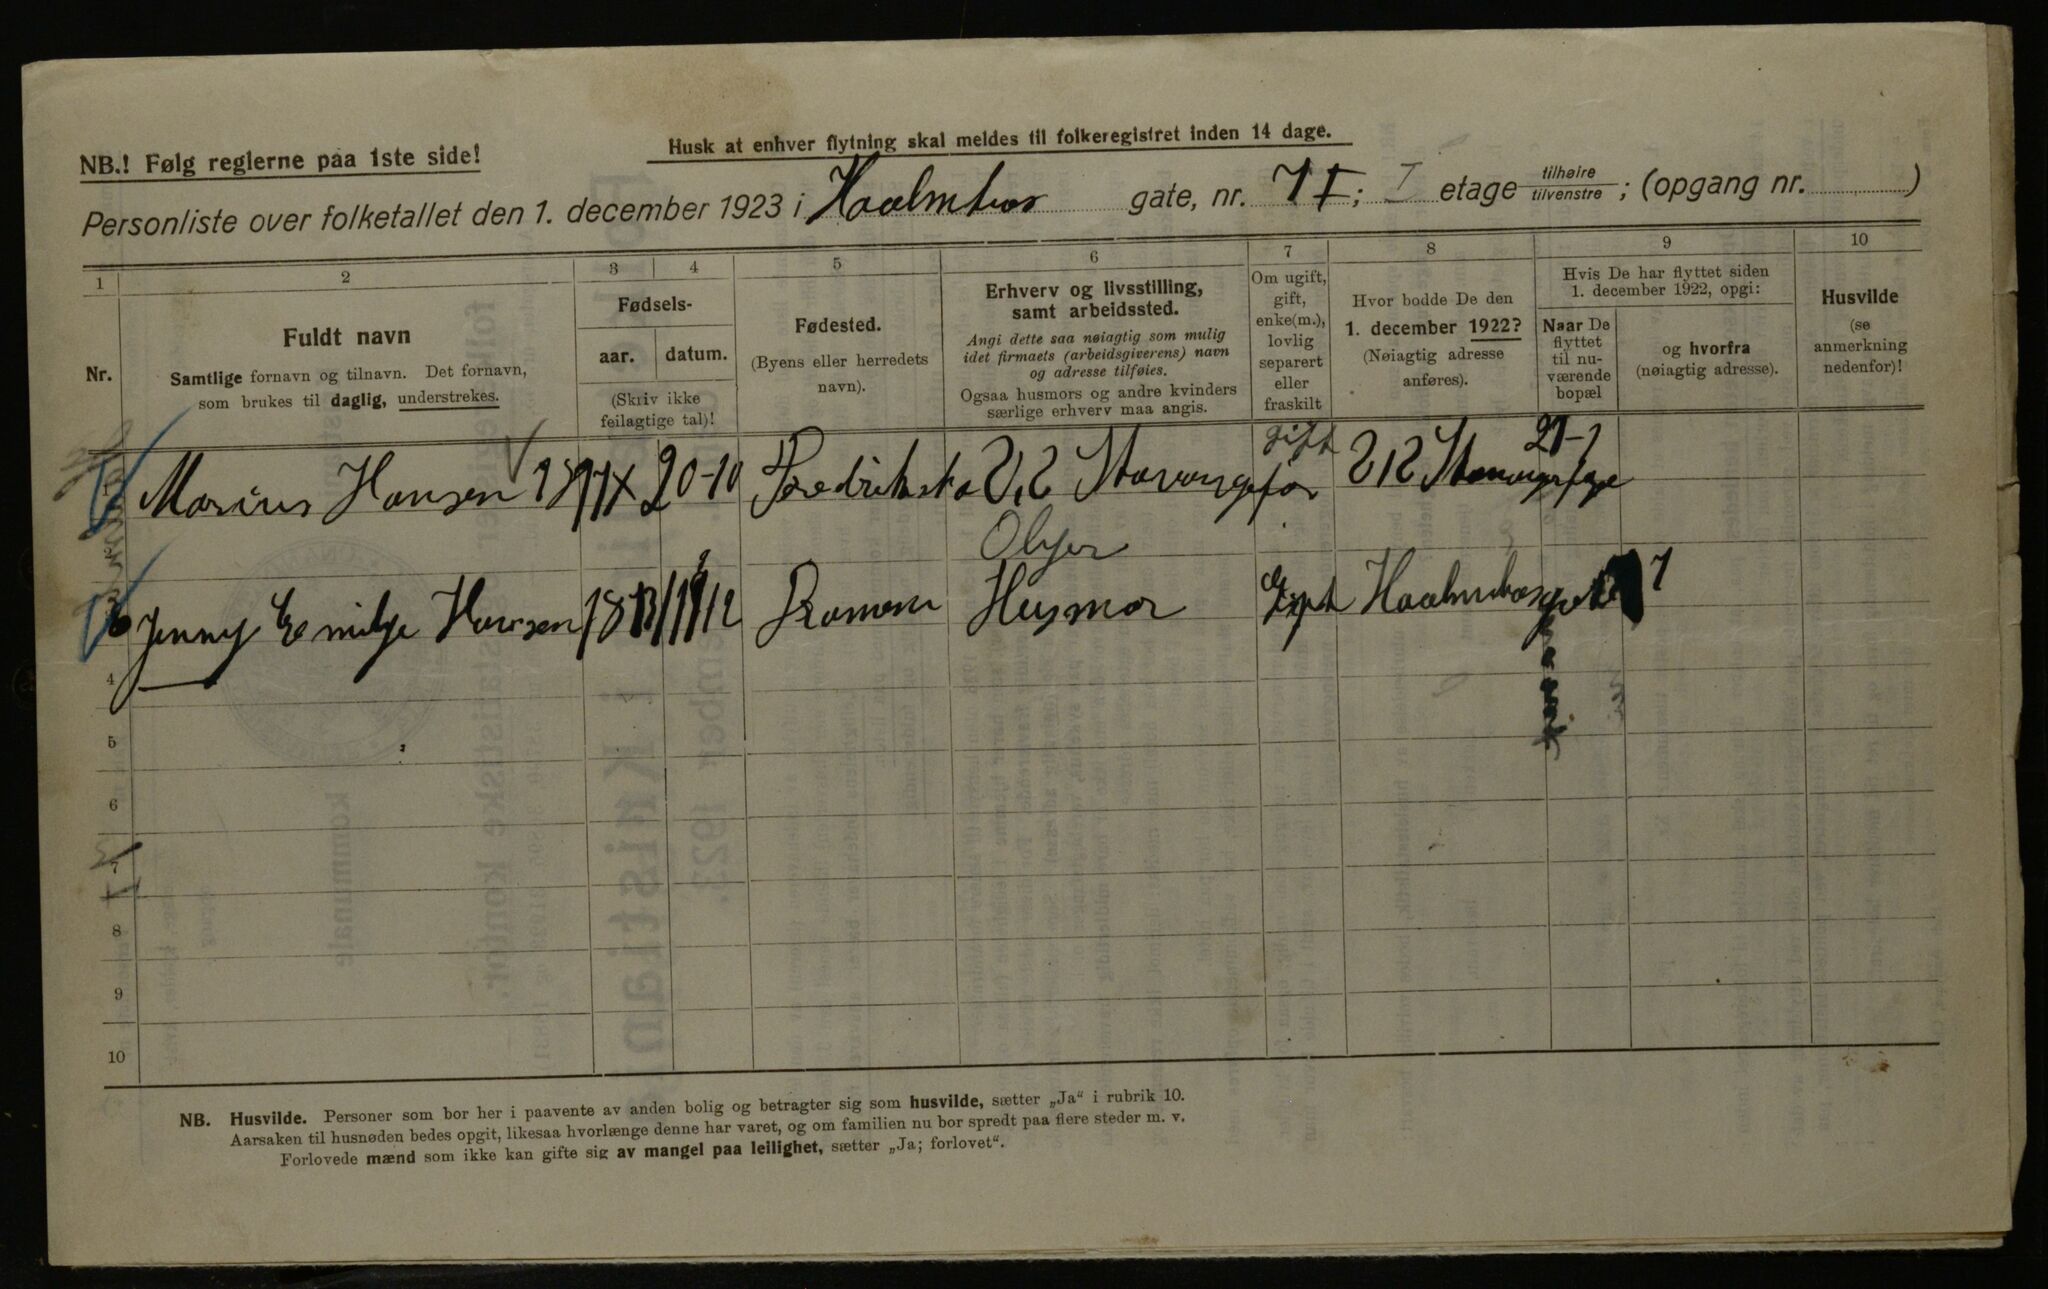 NB.! Følg reglerne paa 1ste side!
Husk at enhver flytning skal meldes til folkeregistret inden 14 dage.
Personliste over folketallet den 1. december 1923 i gate, nr. 7 I; I etage tilhøire tilvenstre; (opgang nr. )
1 2 3 4 5 6 7 8 9 10
Nr.
Fuldt navn
Samtlige fornavn og tilnavn. Det fornavn,
som brukes til daglig, understrekes.
Fødsels-
aar. datum.
(Skriv ikke
feilagtige tal)!
Fødested.
(Byens eller herredets
navn).
Erhverv og livsstilling,
samt arbeidssted.
Angi dette saa nøiagtig som mulig
idet firmaets (arbeidsgiverens) navn
og adresse tilføies.
Ogsaa husmors og andre kvinders
særlige erhverv maa angis.
Om ugift,
gift,
enke(m.),
lovlig
separert
eller
fraskilt
Hvor bodde De den
1. december 1922?
(Nøiagtig adresse
anføres).
Hvis De har flyttet siden
1. december 1922, opgi:
Naar De
flyttet
til nu-
værende
bopæl
og hvorfra
(nøiagtig adresse).
Husvilde
(se
anmerkning
nedenfor)!
Marius Hansen 20-10 gift
Jenny Emilje Hansen Husmor Gift
4
5
6
7
8
9
10
NB. Husvilde. Personer som bor her i paavente av anden bolig og betragter sig som husvilde, sætter „Ja“ i rubrik 10.
Aarsaken til husnøden bedes opgit, likesaa hvorlænge denne har varet, og om familien nu bor spredt paa flere steder m. v.
Forlovede mænd som ikke kan gifte sig av mangel paa leilighet, sætter „Ja; forlovet“.